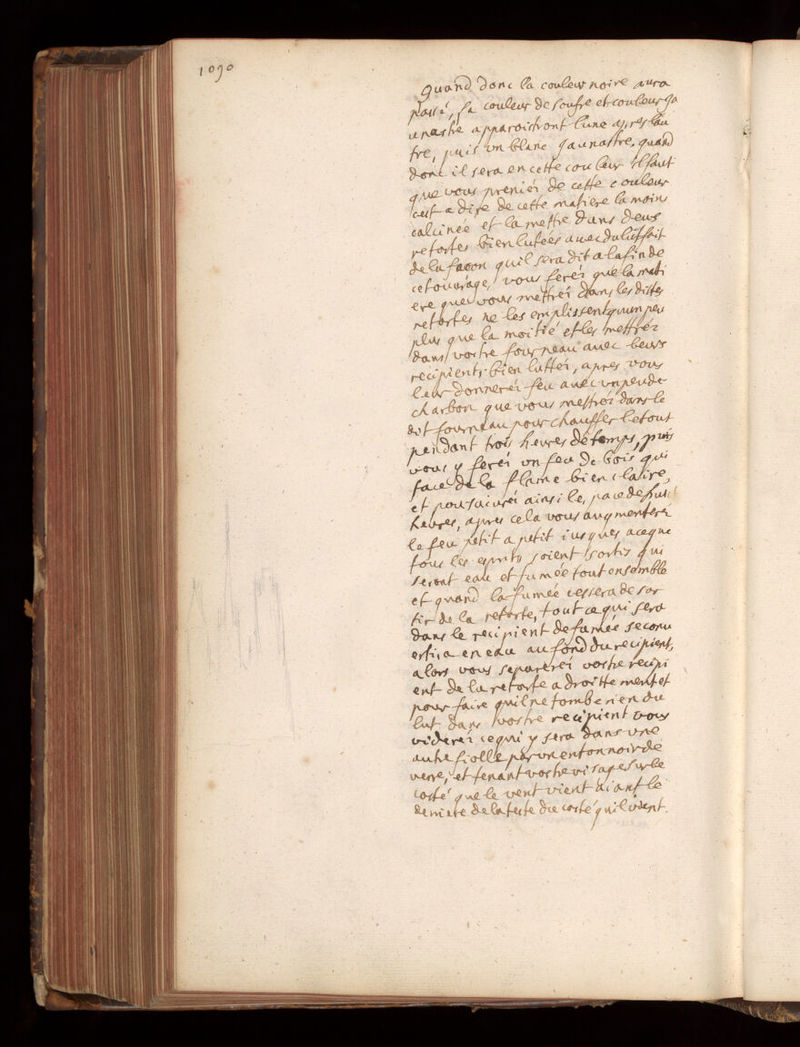 1090
quand donc la couleur noire aura
passé, sa couleur de soufre et couleur ja
unastre apparoistront lune apres lau
tre, puis un blanc jaunastre, quand
donc il sera en cette couleur il faut
que vous preniéz de cette couleur
cest a dire de cette matiere la moins
calcinée et la mettre dans deus
retortes bien lutées auec du lut fait
de la facon quil sera dit a la fin de
cet ouurage, vous feréz que la mati
ere que vous mettréz dans les dittes
retortes ne les emplissent quun peu
plus que la moitié et les mettréz
dans vostre fourneau auec leurs
recipients bien luttéz, apres vous
leur donneréz feu auec un peu de
charbon que vous mettréz dans le
dit fourneau pour chauffer le tout
pendant trois heures de temps, puis
vous y feréz un feu de bois qui
face de la flame bien claire,
et poursuivréz ainsi le, pace de huit
heures, apres cela vous augmenteréz
le feu petit a petit iusques a ce que
tous les esprits soient sortis qui
seront eau et fumée tout ensemble
et quand la fumée cessera de sor
tir de la retorte, tout ce qui sera
dans le recipient de fumée se conu
ertira en eau au fond du recipient,
alors vous separeréz vostre recipi
ent de la retorte adroittement et
pour faire quil ne tombe rien du
lut dans vostre recipient vous
videréz ce qui y sera dans une
autre fiolle par un entonnoir de
verre, et tenant vostre visage sur le
costé que le vent vient aiant le
derriere de la teste du costé quil vient.